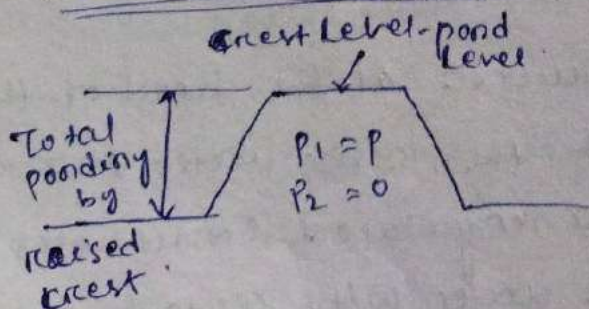 Crest Level-pond
Level.
Total
ponding
by
raised
crest.
P1 = P
P2 = 0